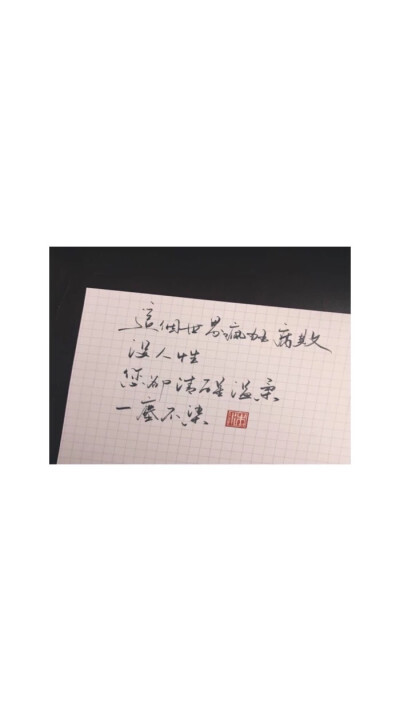 這個世界瘋狂 腐敗
沒人性
您卻清醒溫柔
一塵不染